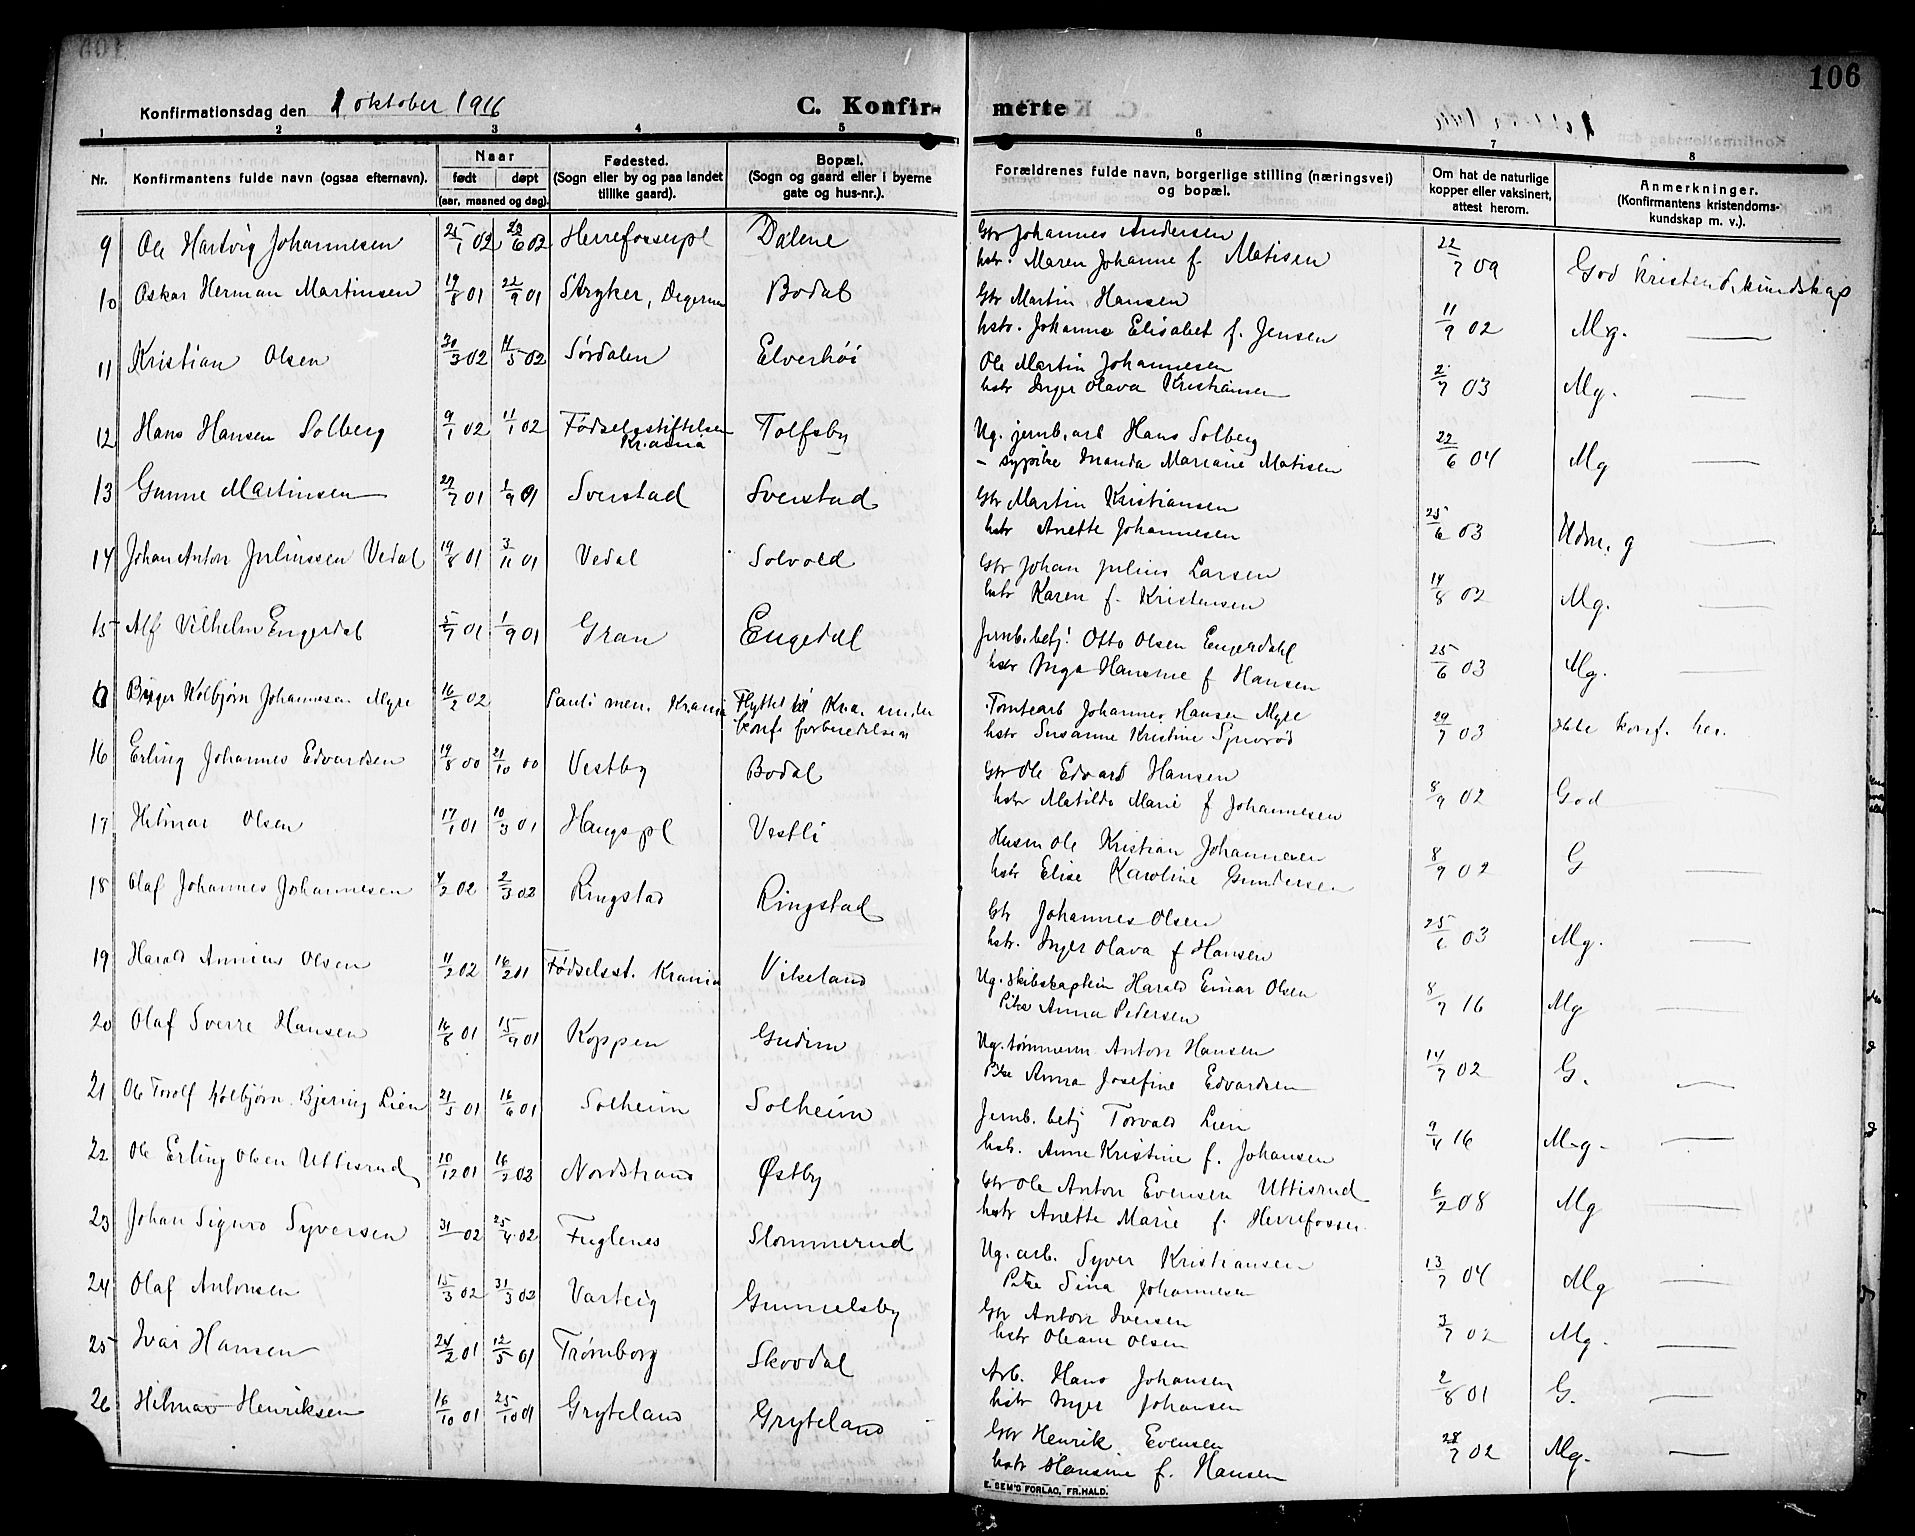 106
Konfirmationsdag den 1 oktober 1916
C. Konfir- merte
1 2 3 4 5 6 7 8
Nr. Konfirmantens fulde navn (ogsaa efternavn). Naar født døpt (aar, maaned og dag). Fødested. (Sogn eller by og paa landet tillike gaard). Bopæl. (Sogn og gaard eller i byerne gate og hus-nr.). Forældrenes fulde navn, borgerlige stilling (næringsvei) og bopæl. Om hat de naturlige kopper eller vaksinert, attest herom. Anmerkninger. (Konfirmantens kristendoms- kundskap m. v.).
9 Ole Hartvig Johannesen 25/1 02 29/6 02 Herrefosserpl Dalene Gbr Johannes Andersen
hstr. Maren Johanne f. Matisen 22/7 09 God kristend. kundskap
10 Oskar Herman Martinsen 19/8 01 22/9 01 Stryker, Degernes Bodal Gbr Martin Hansen
hstr. Johanne Elisabet f. Jensen 11/9 02 M.g. —
11 Kristian Olsen 30/3 02 11/5 02 Sørdalen Elverhøi Ole Martin Johannesen
hstr Inger Olava Kristiansen 2/7 03 Mg. —
12 Hans Hansen Solberg 9/1 02 11/1 02 Fødselsstiftelsen Kr.ania Tolfsby Ug. jernb.arb Hans Solberg
- sypike Inanda Mariane Matisen 22/6 04 Mg —
13 Gunne Martinsen 27/7 01 1/9 01 Sverstad Sverstad Gbr Martin Kristiansen
hstr Anette Johannesen 25/6 03 Udm. g —
14 Johan Anton Juliussen Vedal 19/8 01 3/11 01 Vedal Solvold Gbr Johan Julius Larsen
hstr Karen f. Kristensen 14/8 02 Mg. —
15 Alf Vilhelm Engerdal 5/7 01 1/9 01 Gran Engedal Jernb.betj. Otto Olsen Engerdahl
hstr Inga Hansine f Hansen 25/6 03 Mg. —
0 Birger Kolbjørn Johannesen Myre 16/2 02 Pauli men. Krania Flyttet til Kra. under konf. forberedelsen Tomtearb Johannes Hansen Myre
hstr Susanne Kristine Spuerød 29/7 03 ikke konf. her.
16 Erling Johannes Edvardsen 19/8 00 21/10 00 Vestby Bodal Gbr Ole Edvard Hansen
hstr Matilde Marie f Johannesen 8/9 02 God —
17 Hilmar Olsen 17/1 01 10/3 01 Haugspl Vestli Husm Ole Kristian Johannesen
hstr Elise Karoline Gundersen 8/9 02 G —
18 Olaf Johannes Johannesen 4/2 02 2/3 02 Ringstad Ringstad Gbr Johannes Olsen
hstr. Inger Olava f Hansen 25/6 03 Mg. —
19 Harald Annius Olsen 11/2 02 16/2 01 Fødselsst. Krania Vikeland Ug. skibskaptein Harald Einar Olsen
Pike Anna Pedersen 8/7 16 Mg —
20 Olaf Sverre Hansen 16/8 01 15/9 01 Koppen Gudim Ug. tømmerm. Anton Hansen
Pike Anna Josefine Edvardsen 14/7 02 G. —
21 Ole Torolf Kolbjørn Bjering Lien 21/5 01 16/6 01 Solheim Solheim Jernb. betj Torvald Lien
hstr. Anne Kristine f. Johansen 9/4 16 M.g. —
22 Ole Erling Olsen Uttisrud 10/12 01 16/2 02 Nordstrand Østby Gbr Ole Anton Evensen Uttisrud
hstr Anette Marie f. Herrefosser 6/2 08 Mg —
23 Johan Sigurd Syversen 31/ 02 25/4 02 Fuglenes Slommerud Ug. arb. Syver Kristiansen
Pike Sina Johannesen 13/7 04 Mg —
24 Olaf Antonsen 15/3 02 31/3 02 Varteig Gunnelsby Gbr Anton Iversen
hstr Oleane Olsen 3/7 02 Mg. —
25 Ivar Hansen 24/2 01 12/5 01 Trømborg Skovdal Arb. Hans Johansen
hstr Inger Johansen 2/8 01 G. —
26 Hilmar Henriksen 16/10 01 25/10 01 Gryteland Gryteland Gbr Henrik Evensen
hstr Hansine f. Hansen 28/7 02 Mg. —
E. SEM'S FORLAG, FR.HALD.